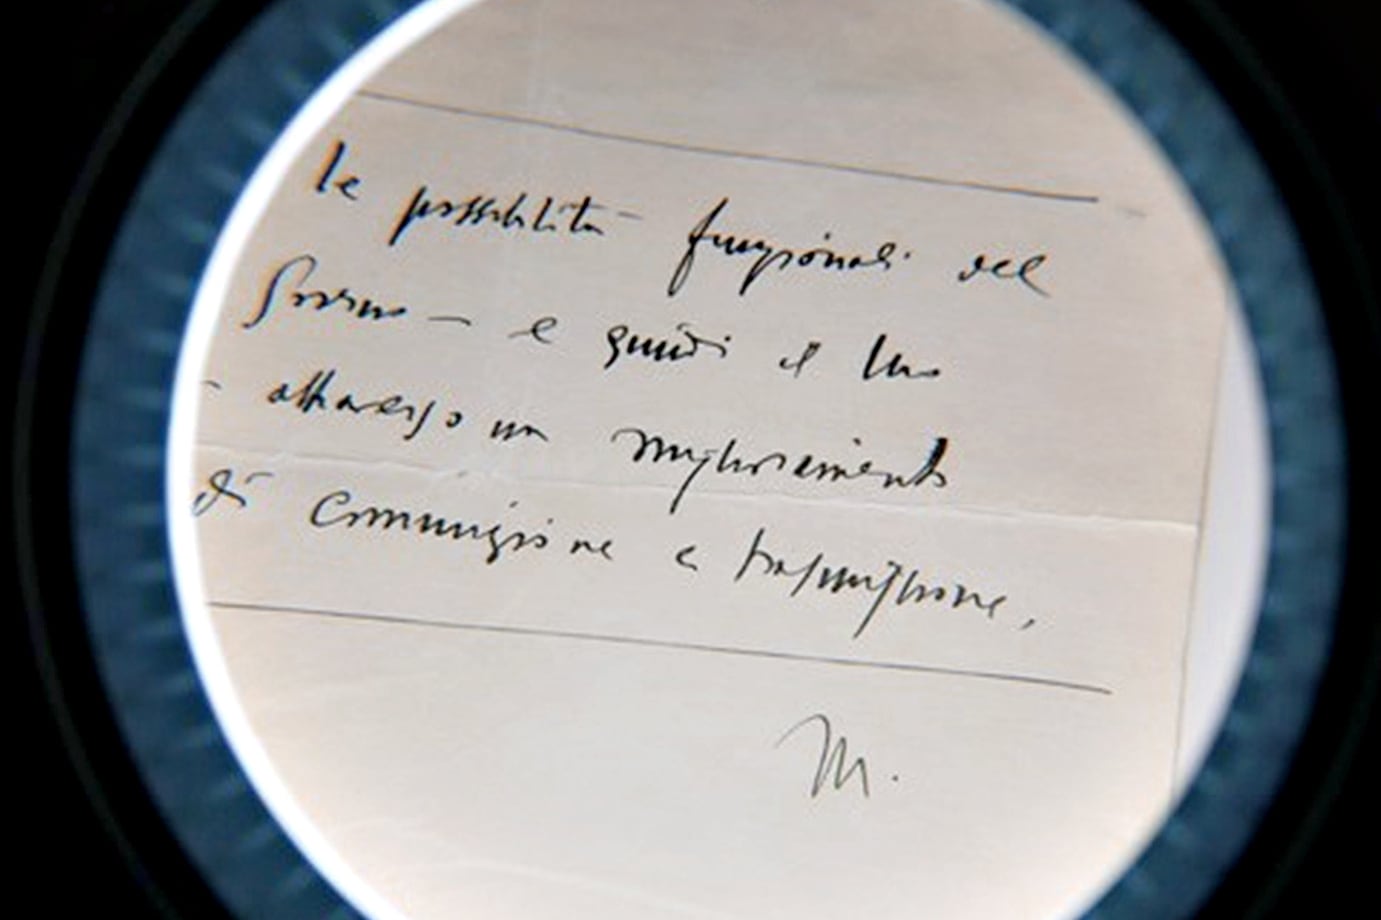 le possibilità funzionali del
Governo — e quindi il suo
- attraverso un miglioramento
di comunicazione e trasmissione,
M.